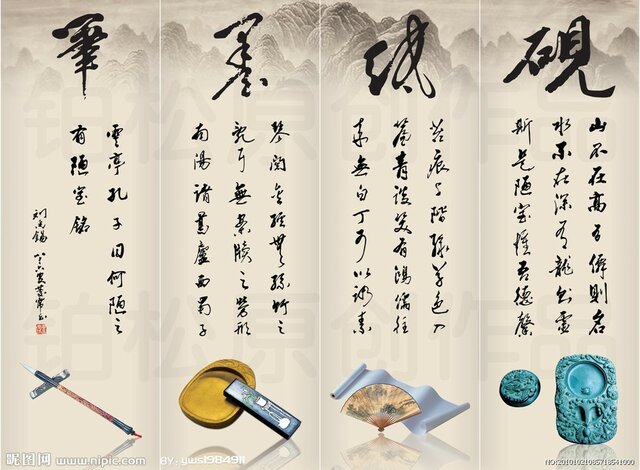 硯
山不在高有僊則名
水不在深有龍則靈
斯是陋室惟吾德馨
紙
苔痕上階緑草色入
簾青談笑有鴻儒往
來無白丁可以調素
墨
琴閱金經無絲竹之
亂耳無案牘之勞形
南陽諸葛廬西蜀子
筆
雲亭孔子曰何陋之
有陋室銘
劉禹錫
铂松原创作品
铂松原创作品
昵图网
www.nipic.com
BY: yws1984911
NO:20101021085718541000